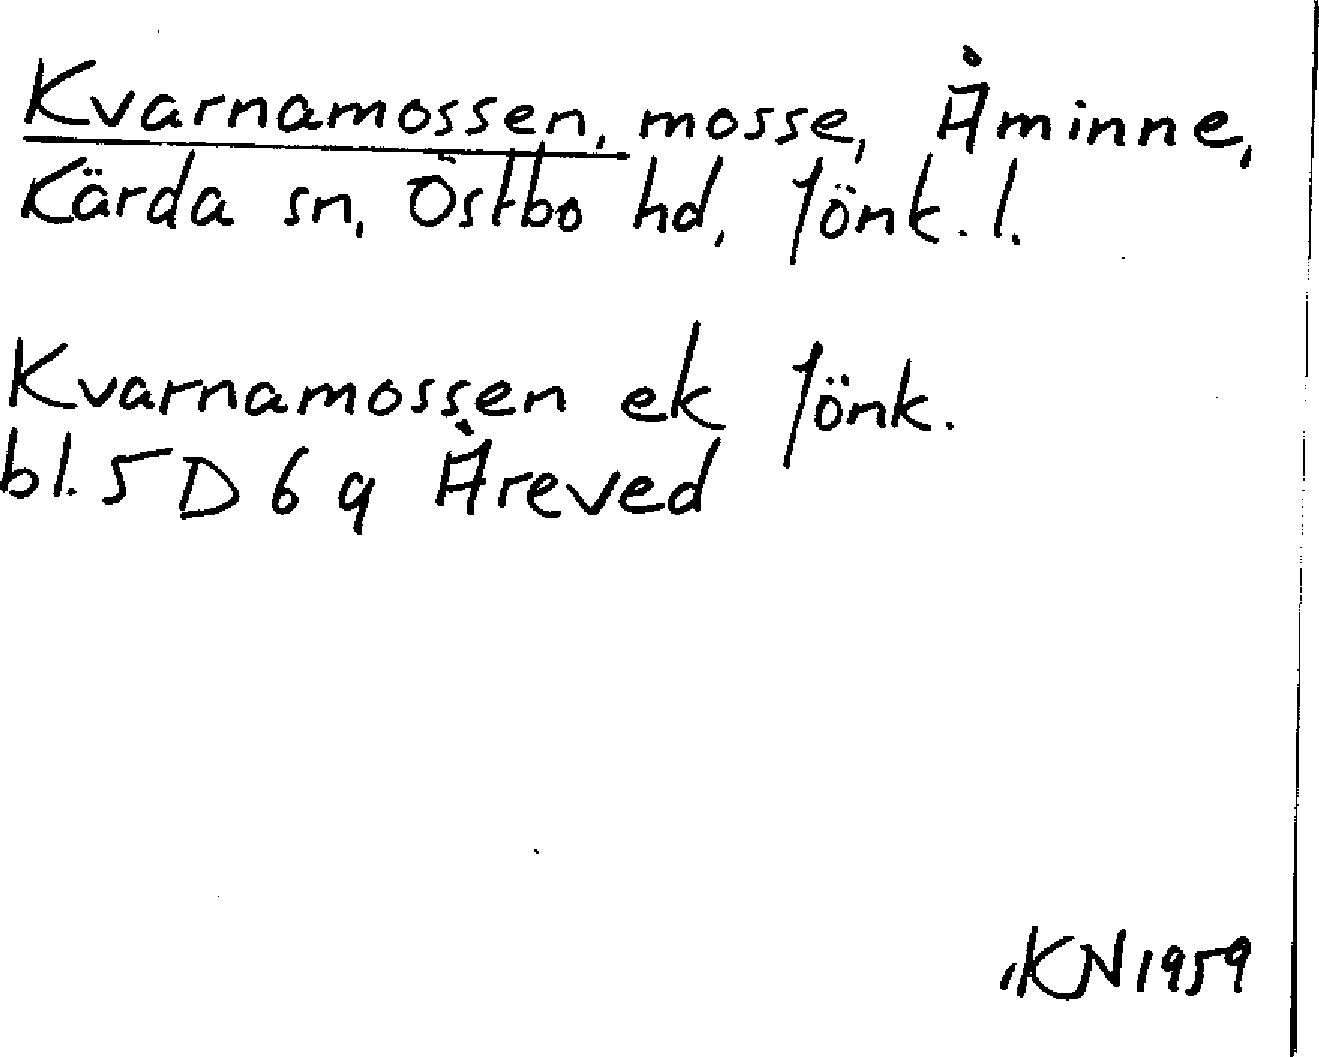 Kvarnamossen, mosse, Åminne,
Kärda sn, Östbo hd, Jönk. l.
Kvarnamossen ek Jönk.
bl. 5 D 6 q Åreved
KN 1959